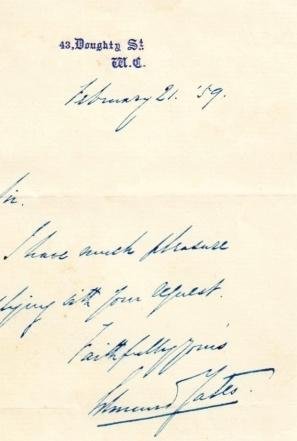 43, Doughty St.
W.C.
February 21. '59.
Sir.
I have much pleasure
plying with your request.
Faithfully yours
Edmund Yates.